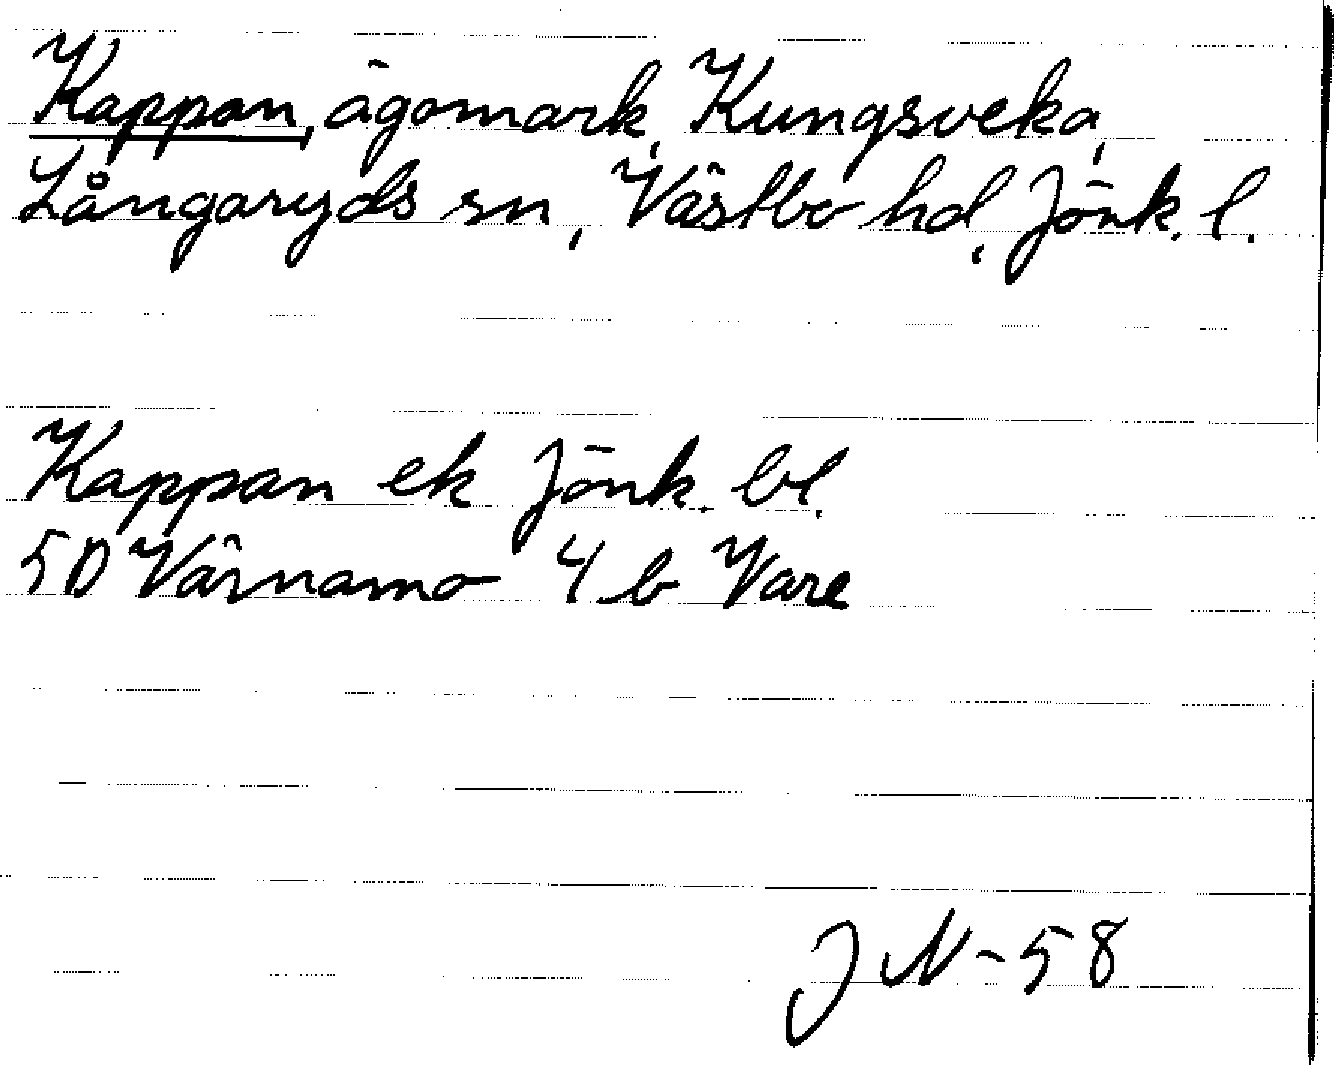 Kappan, ägomark, Kungsveka,
Långaryds sn, Västbo hd, Jönk. l.
Kappan ek Jönk. bl.
5D Värnamo 4 b Vare
J N - 58